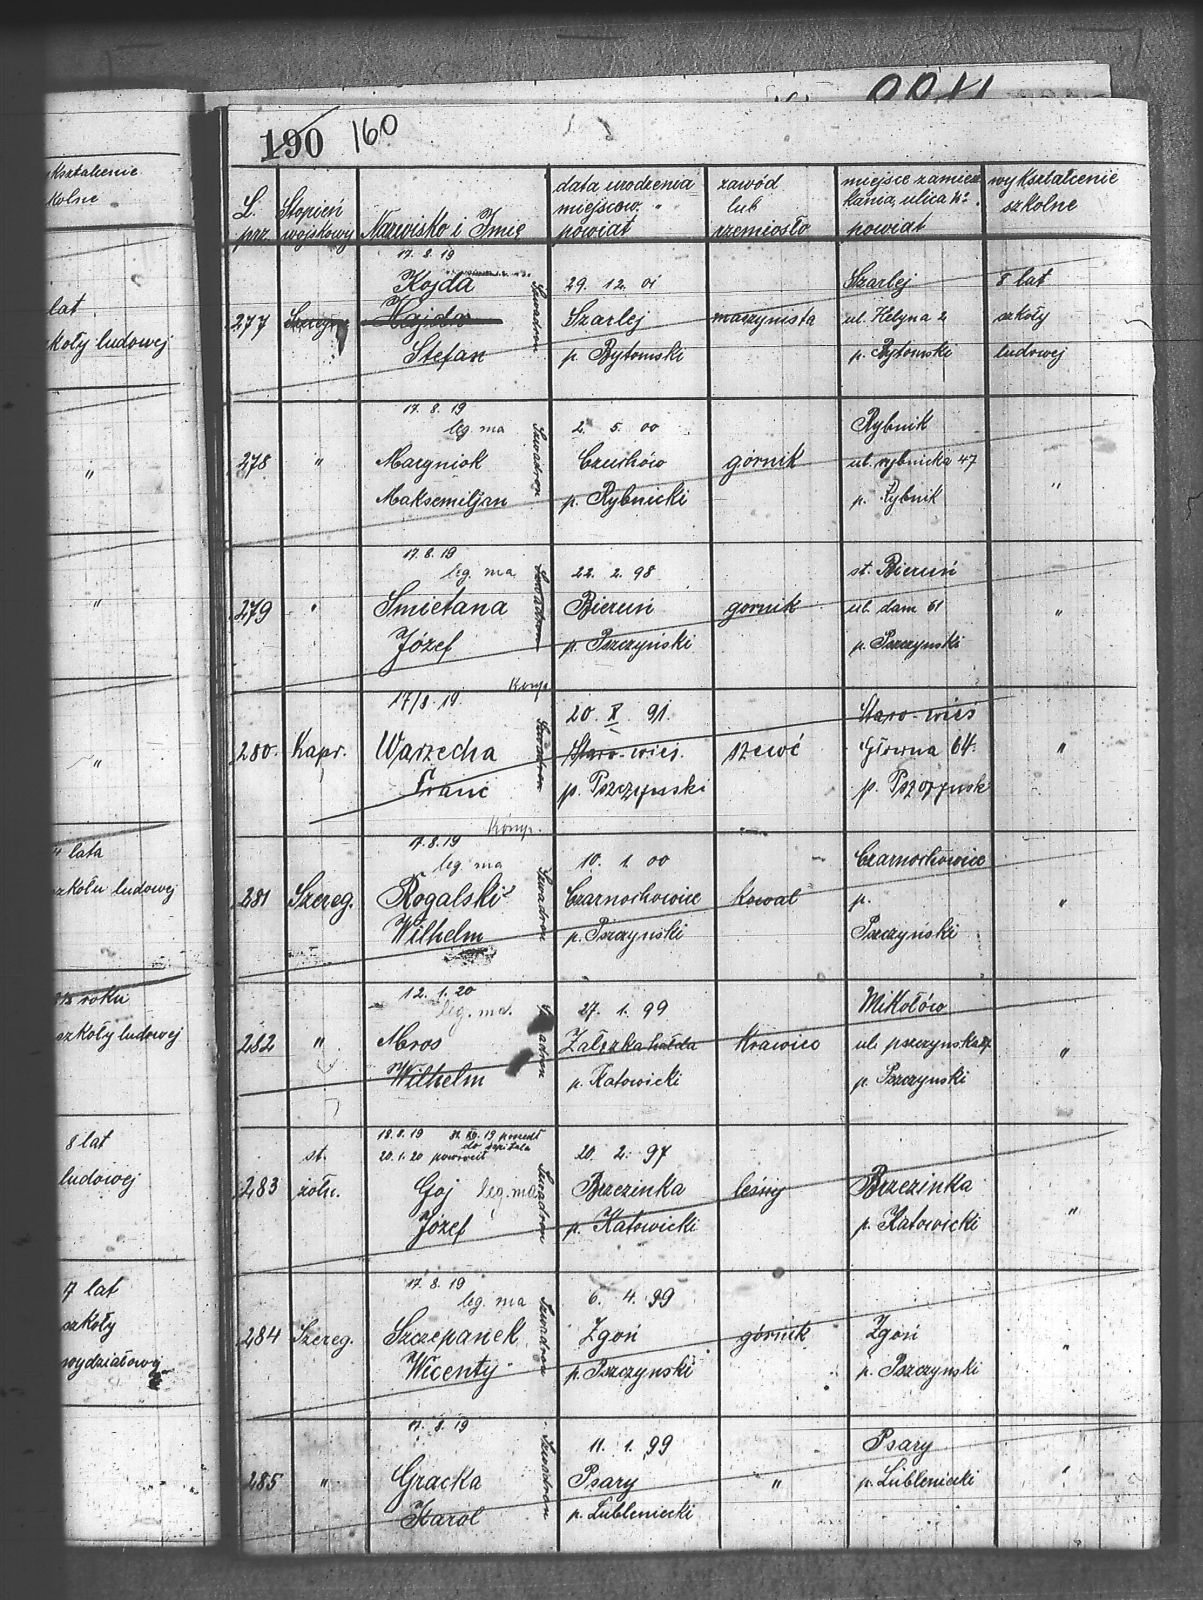 190 160
L. prz.
Stopień wojskowy
Nazwisko i Imię
data urodzenia
miejscow. "
powiat
zawód
lub
rzemiosło
miejsce zamiesz
kania, ulica №.
powiat
wykształcenie
szkolne
17. 8. 19
Kojda
277 Szereg. Hajda
Stefan
Szwadron
29. 12. 01
Szarlej
p. Bytomski
maszynista
Szarlej
ul. Helyna 2
p. Bytomski
8 lat
szkoły
ludowej
17. 8. 19
leg. ma
278 " Margniok
Maksemiljan
Szwadron
2. 5. 00
Czuchów
p. Rybnicki
górnik
Rybnik
ul. rybnicka 47
p. Rybnik
"
17. 8. 19
leg. ma
279 " Smietana
Józef
Szwadron
22. 2. 98
Bieruń
p. Pszczyński
gornik
st. Bieruń
ul. dam 61
p. Pszczyński
"
17/8. 19.
280. Kapr. Warzecha
Franc
Szwadron
20. X. 91.
Staro-wieś.
p. Pszczynski
szewć
Staro-wieś
Główna 64.
p. Pszczynsk
"
17. 8. 19
leg. ma
281 Szereg. Rogalski
Wilhelm
Szwadron
10. 1. 00
Czarnochowice
p. Pszczyński
kowal
Czarnochowice
p.
Pszczyński
"
12. 1. 20
leg. ma.
282 " Mros
Wilhelm
Szwadron
27. 1. 99
Załęzka hałda
p. Katowicki
Krawiec
Mikołów
ul. pszczynska
p. Pszczynski
"
18. 8. 19 31. XII. 19 poszedł
do szpitala
20. 1. 20 powrócił
283 st. żołn. Goj leg. ma
Józef
Szwadron
20. 2. 97
Brzezinka
p. Katowicki
leśny
Brzezinka
p. Katowicki
"
17. 8. 19
leg. ma
284 Szereg. Szczepanek
Wicenty
Szwadron
6. 4. 99
Zgoń
p. Pszczyński
górnik
Zgoń
p. Pszczynski
"
17. 8. 19
285 " Gracka
Karol
Szwadron
11. 1. 99
Psary
p. Lubleniecki
"
Psary
p. Lubleniecki
"
kształcenie
kolne
lat
koły ludowej
"
"
"
lata
zkoły ludowej
roku
szkoły ludowej
8 lat
ludowej
7 lat
szkoły
wydziałowy